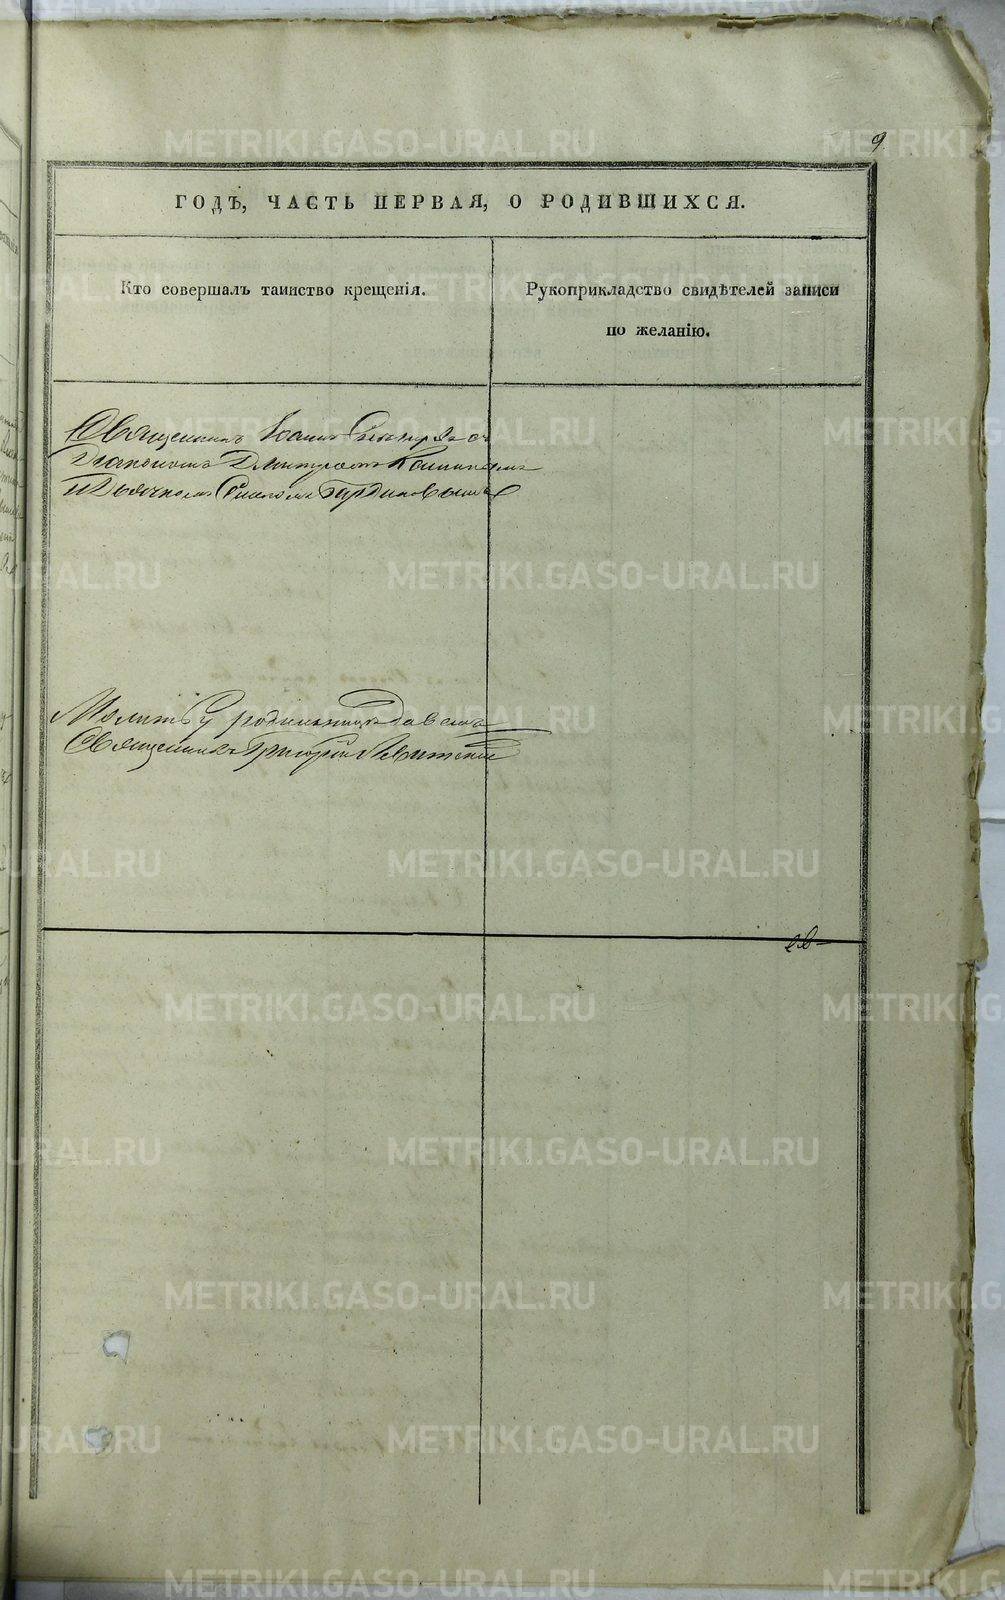 9
ГОДЪ, ЧАСТЬ ПЕРВАЯ, О РОДИВШИХСЯ.
Кто совершалъ таинство крещенія.
Рукоприкладство свидѣтелей записи
по желанію.
Священникъ Іоаннъ съ
Діакономъ Дмитріемъ
и Дьячкомъ
Молитву родильницѣ давалъ
Священникъ Григорій Левитскій
METRIKI.GASO-URAL.RU